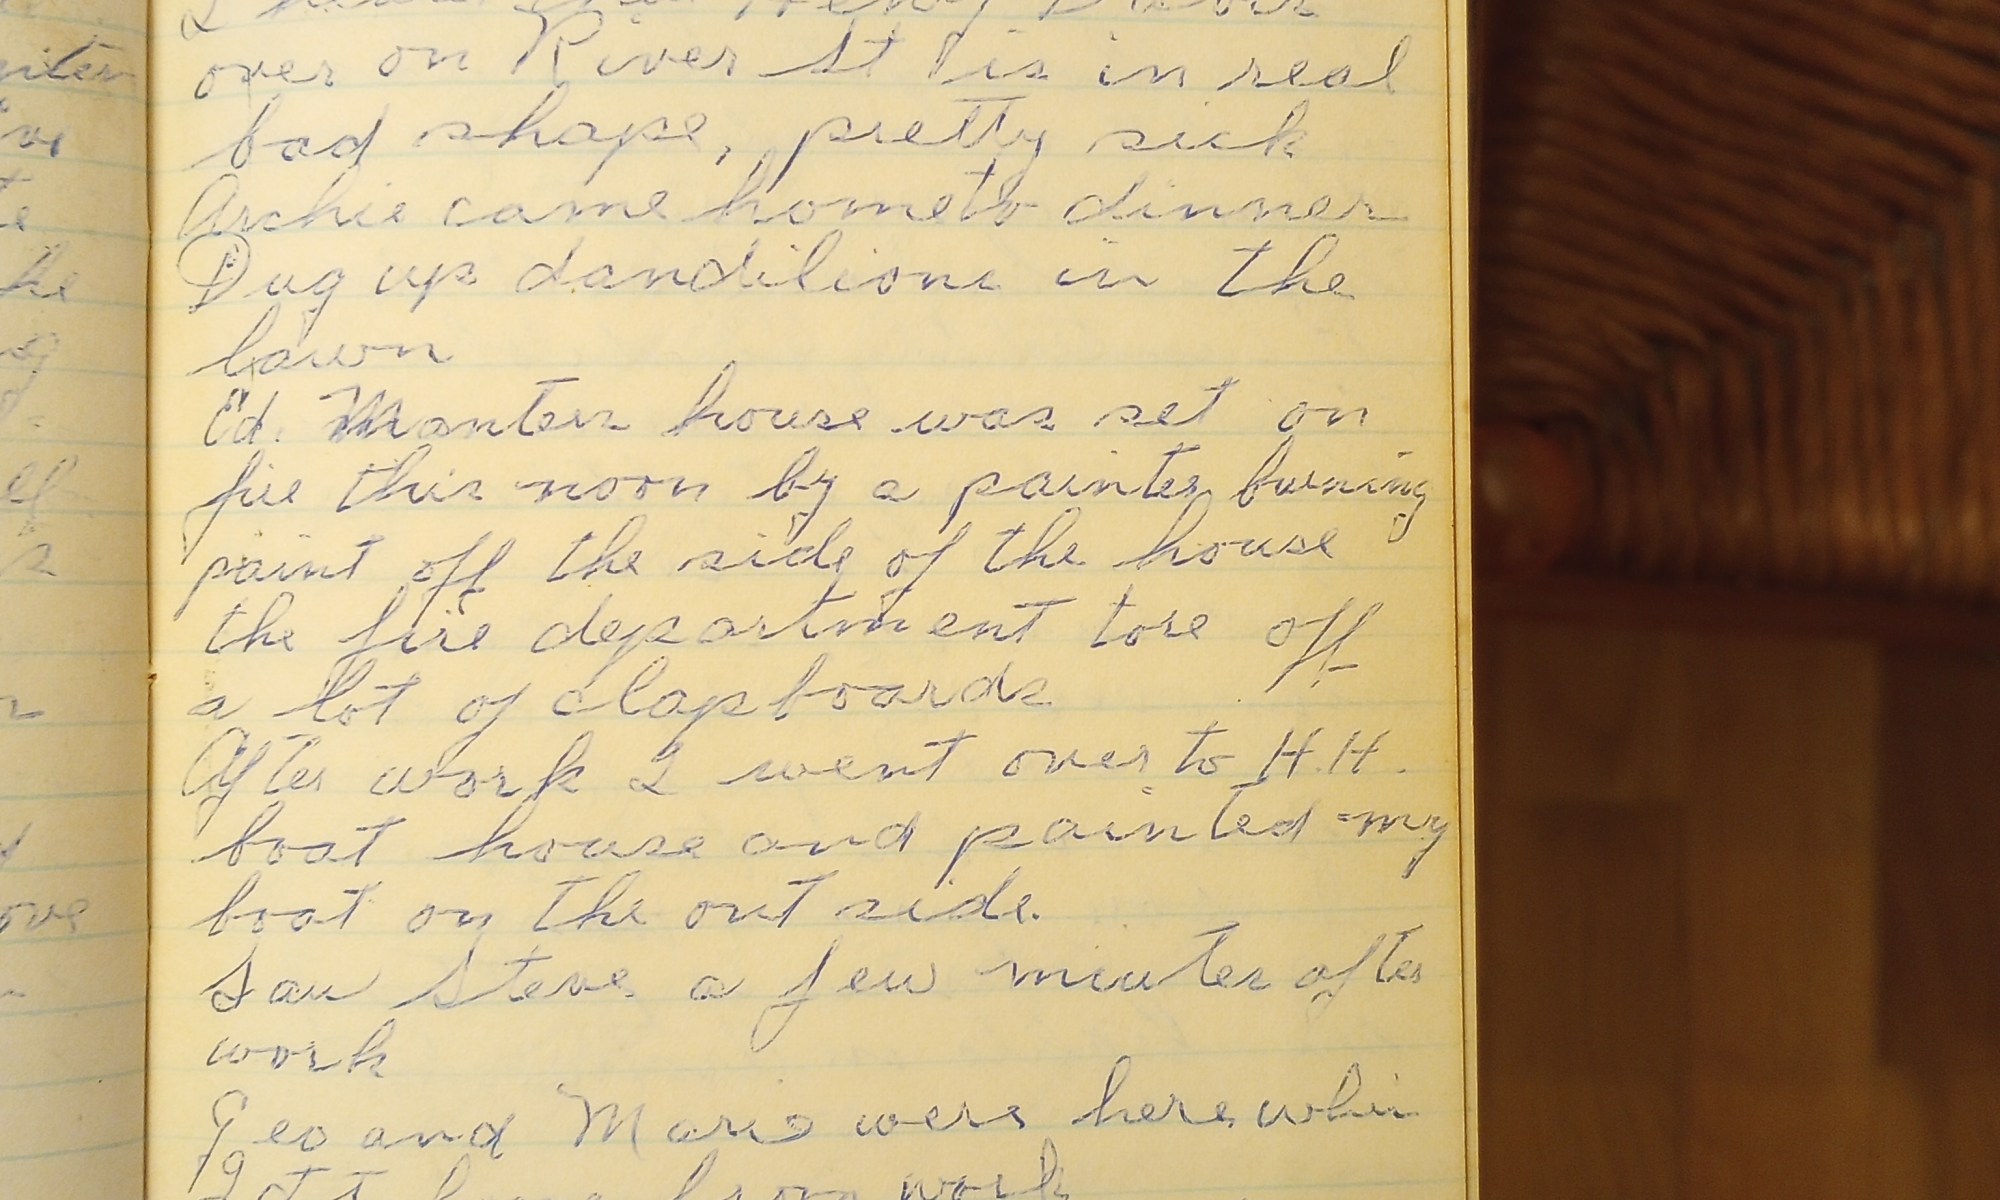 over on River St is in real
bad shape, pretty sick
Archie came home to dinner
Dug up dandilions in the
lawn
Ed. Manters house was set on
fire this noon by a painter burning
paint off the side of the house
the fire department tore off
a lot of clapboards
After work I went over to H.H.
boat house and painted my
boat on the out side.
Saw Steve a few minutes after
work
Geo and Marie were here when
I got home from work